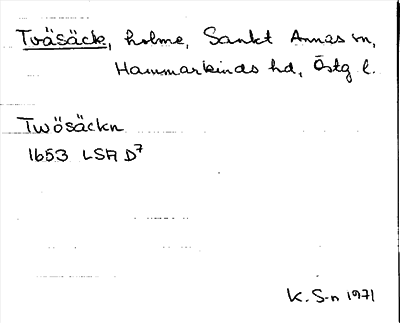 Tväsäck, holme, Sankt Annas sn,
Hammarkinds hd, Östg l.
Twösäckn
1653 LSA D7
K. S-n 1971